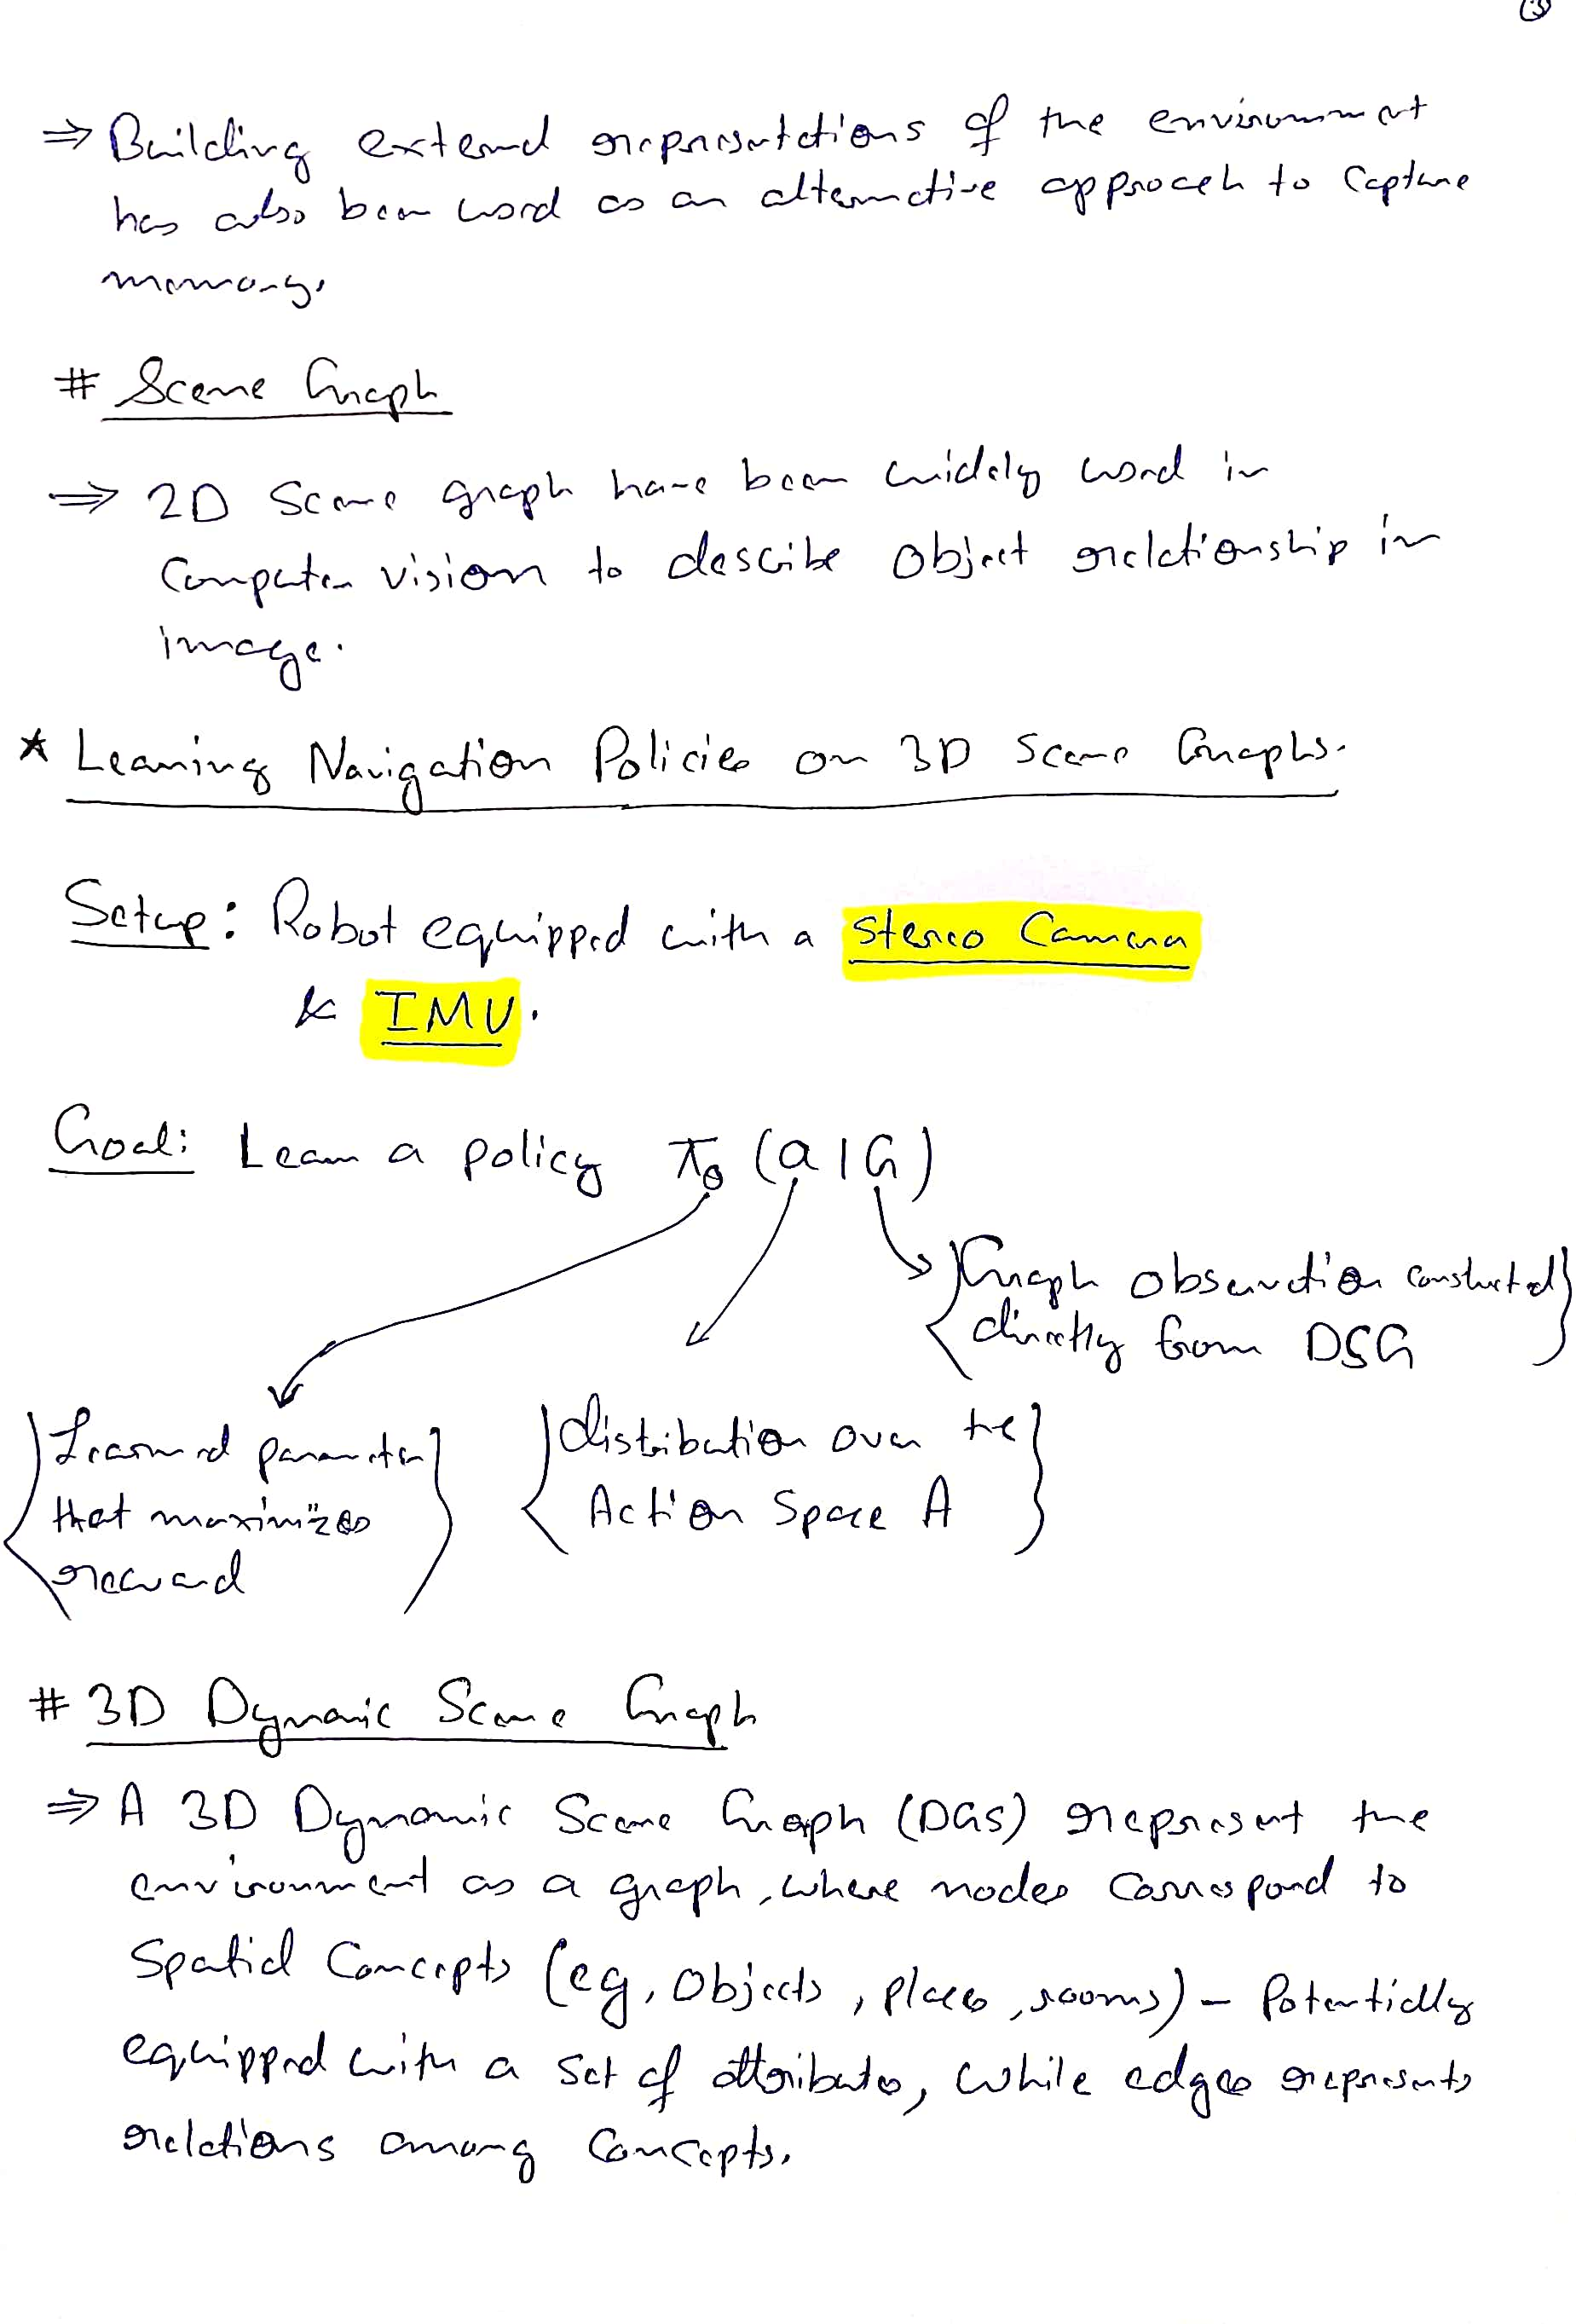 ⇒ Building external representations of the environment
has also been used as an alternative approach to capture
memory.
# Scene Graph
⇒ 2D Scene graph have been widely used in
Computer vision to describe object relationship in
image.
* Learning Navigation Policies on 3D Scene Graphs.
Setup: Robot equipped with a Stereo Camera
& IMU.
Goal: Learn a policy πθ (a|G)
{Graph observation constucted}
directly from DSG
{Learned parameter
that maximizes
reward}
{distribution over the
Action Space A}
# 3D Dynamic Scene Graph
⇒ A 3D Dynamic Scene Graph (DGS) represent the
environment as a graph, where nodes correspond to
Spatial Concepts (eg, Objects, places, rooms) - Potentially
equipped with a set of attributes, while edges represents
relations among Concepts.